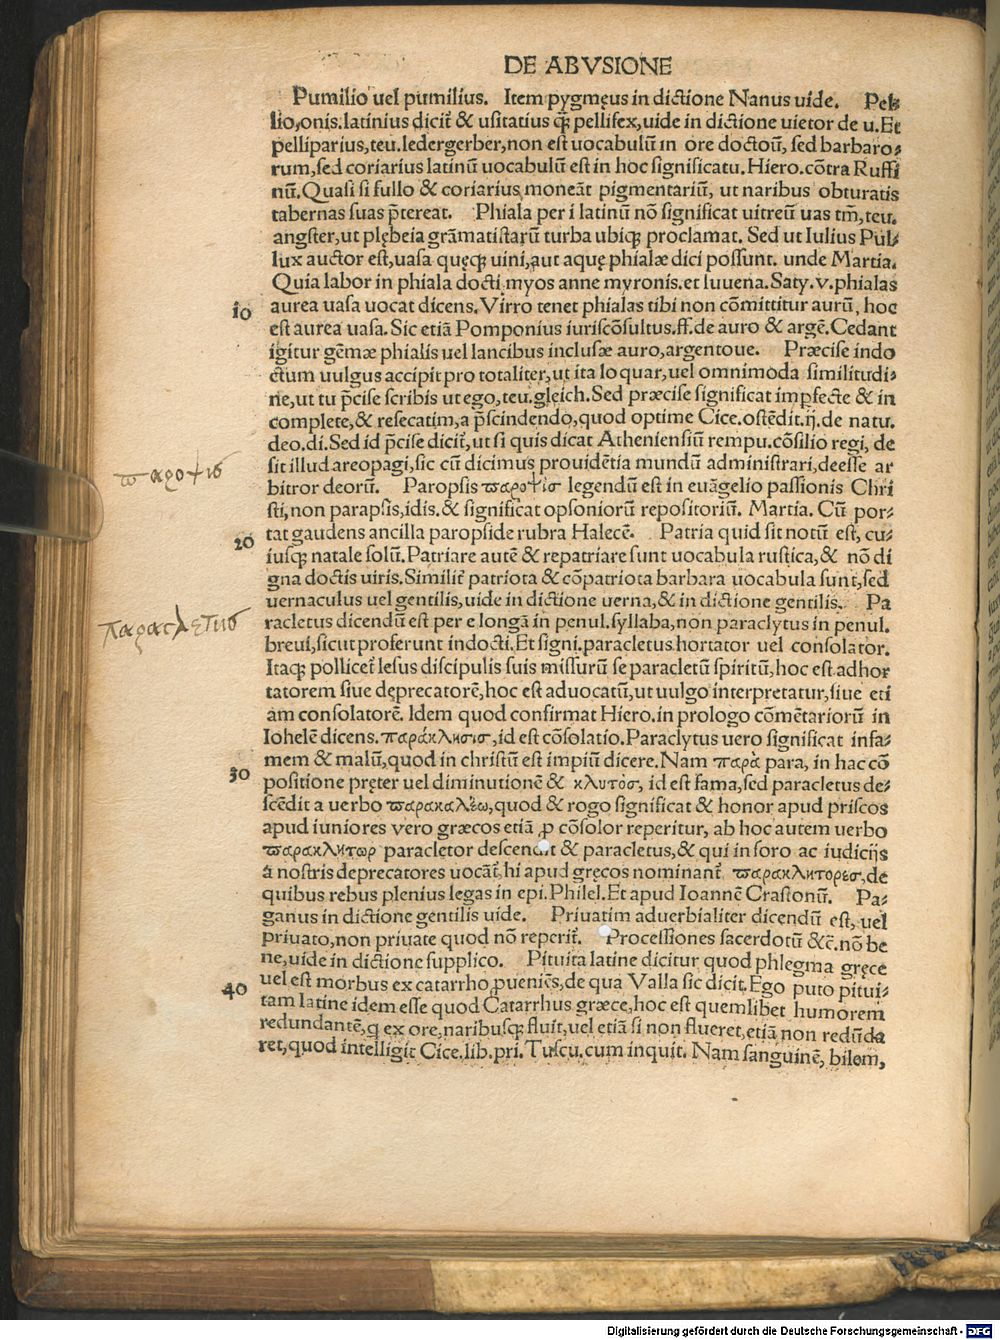 DE ABVSIONE
Pumilio uel pumilius. Item pygmęus in dictione Nanus uide. Pel⸗
lio,onis.latinius dicit̃ & usitatius q̃ȝ pellifex,uide in dictione uietor de u.Et
pelliparius,teu.ledergerber,non est uocabulū in ore doctoū, sed barbaro⸗
rum,sed coriarius latinū uocabulū est in hoc significatu.Hiero.cōtra Ruffi
nū.Quasi si fullo & coriarius moneāt pigmentariū, ut naribus obturatis
tabernas suas p̄tereat. Phiala per i latinū nō significat uitreū uas tm̄,teu.
angster,ut plębeia grāmatistarū turba ubiqȝ proclamat. Sed ut Iulius Pol⸗
lux auctor est,uasa quęqȝ uini,aut aquę phialæ dici possunt. unde Martia.
Quia labor in phiala docti myos anne myronis.et Iuuena.Saty.v.phialas
10 aurea uasa uocat dicens.Virro tenet phialas tibi non cōmittitur aurū, hoc
est aurea uasa.Sic etiā Pomponius iuriscōsultus.ff.de auro & argē.Cedant
igitur gēmæ phialis uel lancibus inclusæ auro,argentoue. Præcise indo
ctum uulgus accipit pro totaliter,ut ita loquar,uel omnimoda similitudi⸗
ne,ut tu p̄cise scribis ut ego,teu.gleich.Sed præcise significat impfecte & in
complete,& resecatim,a p̄scindendo,quod optime Cice.ostēdit.ij.de natu.
deo.di.Sed id p̄cise dicit̃,ut si quis dicat Atheniensiū rempu.cōsilio regi, de
sit illud areopagi,sic cū dicimus prouidētia mundū administrari,deesse ar
παροψις
bitror deorū. Paropsis παροψὶσ legendū est in euāgelio passionis Chri
sti,non parapsis,idis.& significat opsoniorū repositoriū. Martia. Cū por⸗
tat gaudens ancilla paropside rubra Halecē. Patria quid sit notū est, cu⸗
20 iusqȝ natale solū.Patriare autē & repatriare sunt uocabula rustica,& nō di
gna doctis uiris.Similit̃ patriota & cōpatriota barbara uocabula sunt,sed
uernaculus uel gentilis,uide in dictione uerna,& in dictione gentilis. Pa
παρακλετυς
racletus dicendū est per e longā in penul.syllaba,non paraclytus in penul.
breui,sicut proferunt indocti.Et signi.paracletus hortator uel consolator.
Itaqȝ pollicet̃ Iesus discipulis suis missurū se paracletū spiritū,hoc est adhor
tatorem siue dęprecatorē,hoc est aduocatū,ut uulgo interpretatur,siue eti
am consolatorē. Idem quod confirmat Hiero.in prologo cōmētariorū in
Iohelē dicens.παράκλησισ,id est cōsolatio.Paraclytus uero significat infa⸗
mem & malū,quod in christū est impiū dicere.Nam παρὰ para, in hac cō
30 positione pręter uel diminutionē & κλυτὸσ, id est fama,sed paracletus de⸗
scēdit a uerbo παρακαλέω,quod & rogo significat & honor apud priscos
apud iuniores vero græcos etiā ꝓ cōsolor reperitur, ab hoc autem uerbo
παρακλήτωρ paracletor descendit & paracletus,& qui in foro ac iudicijs
à nostris deprecatores uocāt̃,hi apud gręcos nominant̃ παρακλήτορεσ,de
quibus rebus plenius legas in epi.Philel.Et apud Ioannē Crastonū. Pa⸗
ganus in dictione gentilis uide. Priuatim aduerbialiter dicendū est, uel
priuato,non priuate quod nō reperit̃. Processiones sacerdotū &c̄.nō be
ne,uide in dictione supplico. Pituita latine dicitur quod phlegma gręce
uel est morbus ex catarrho ꝓueniēs,de qua Valla sic dicit.Ego puto pitui⸗
40 tam latine idem esse quod Catarrhus græce,hoc est quemlibet humorem
redundantē,q ex ore,naribusqȝ fluit,uel etiā si non flueret,etiā non redūda
ret,quod intelligit Cice.lib.pri.Tuscu.cum inquit. Nam sanguinē, bilem,
Digitalisierung gefördert durch die Deutsche Forschungsgemeinschaft - DFG